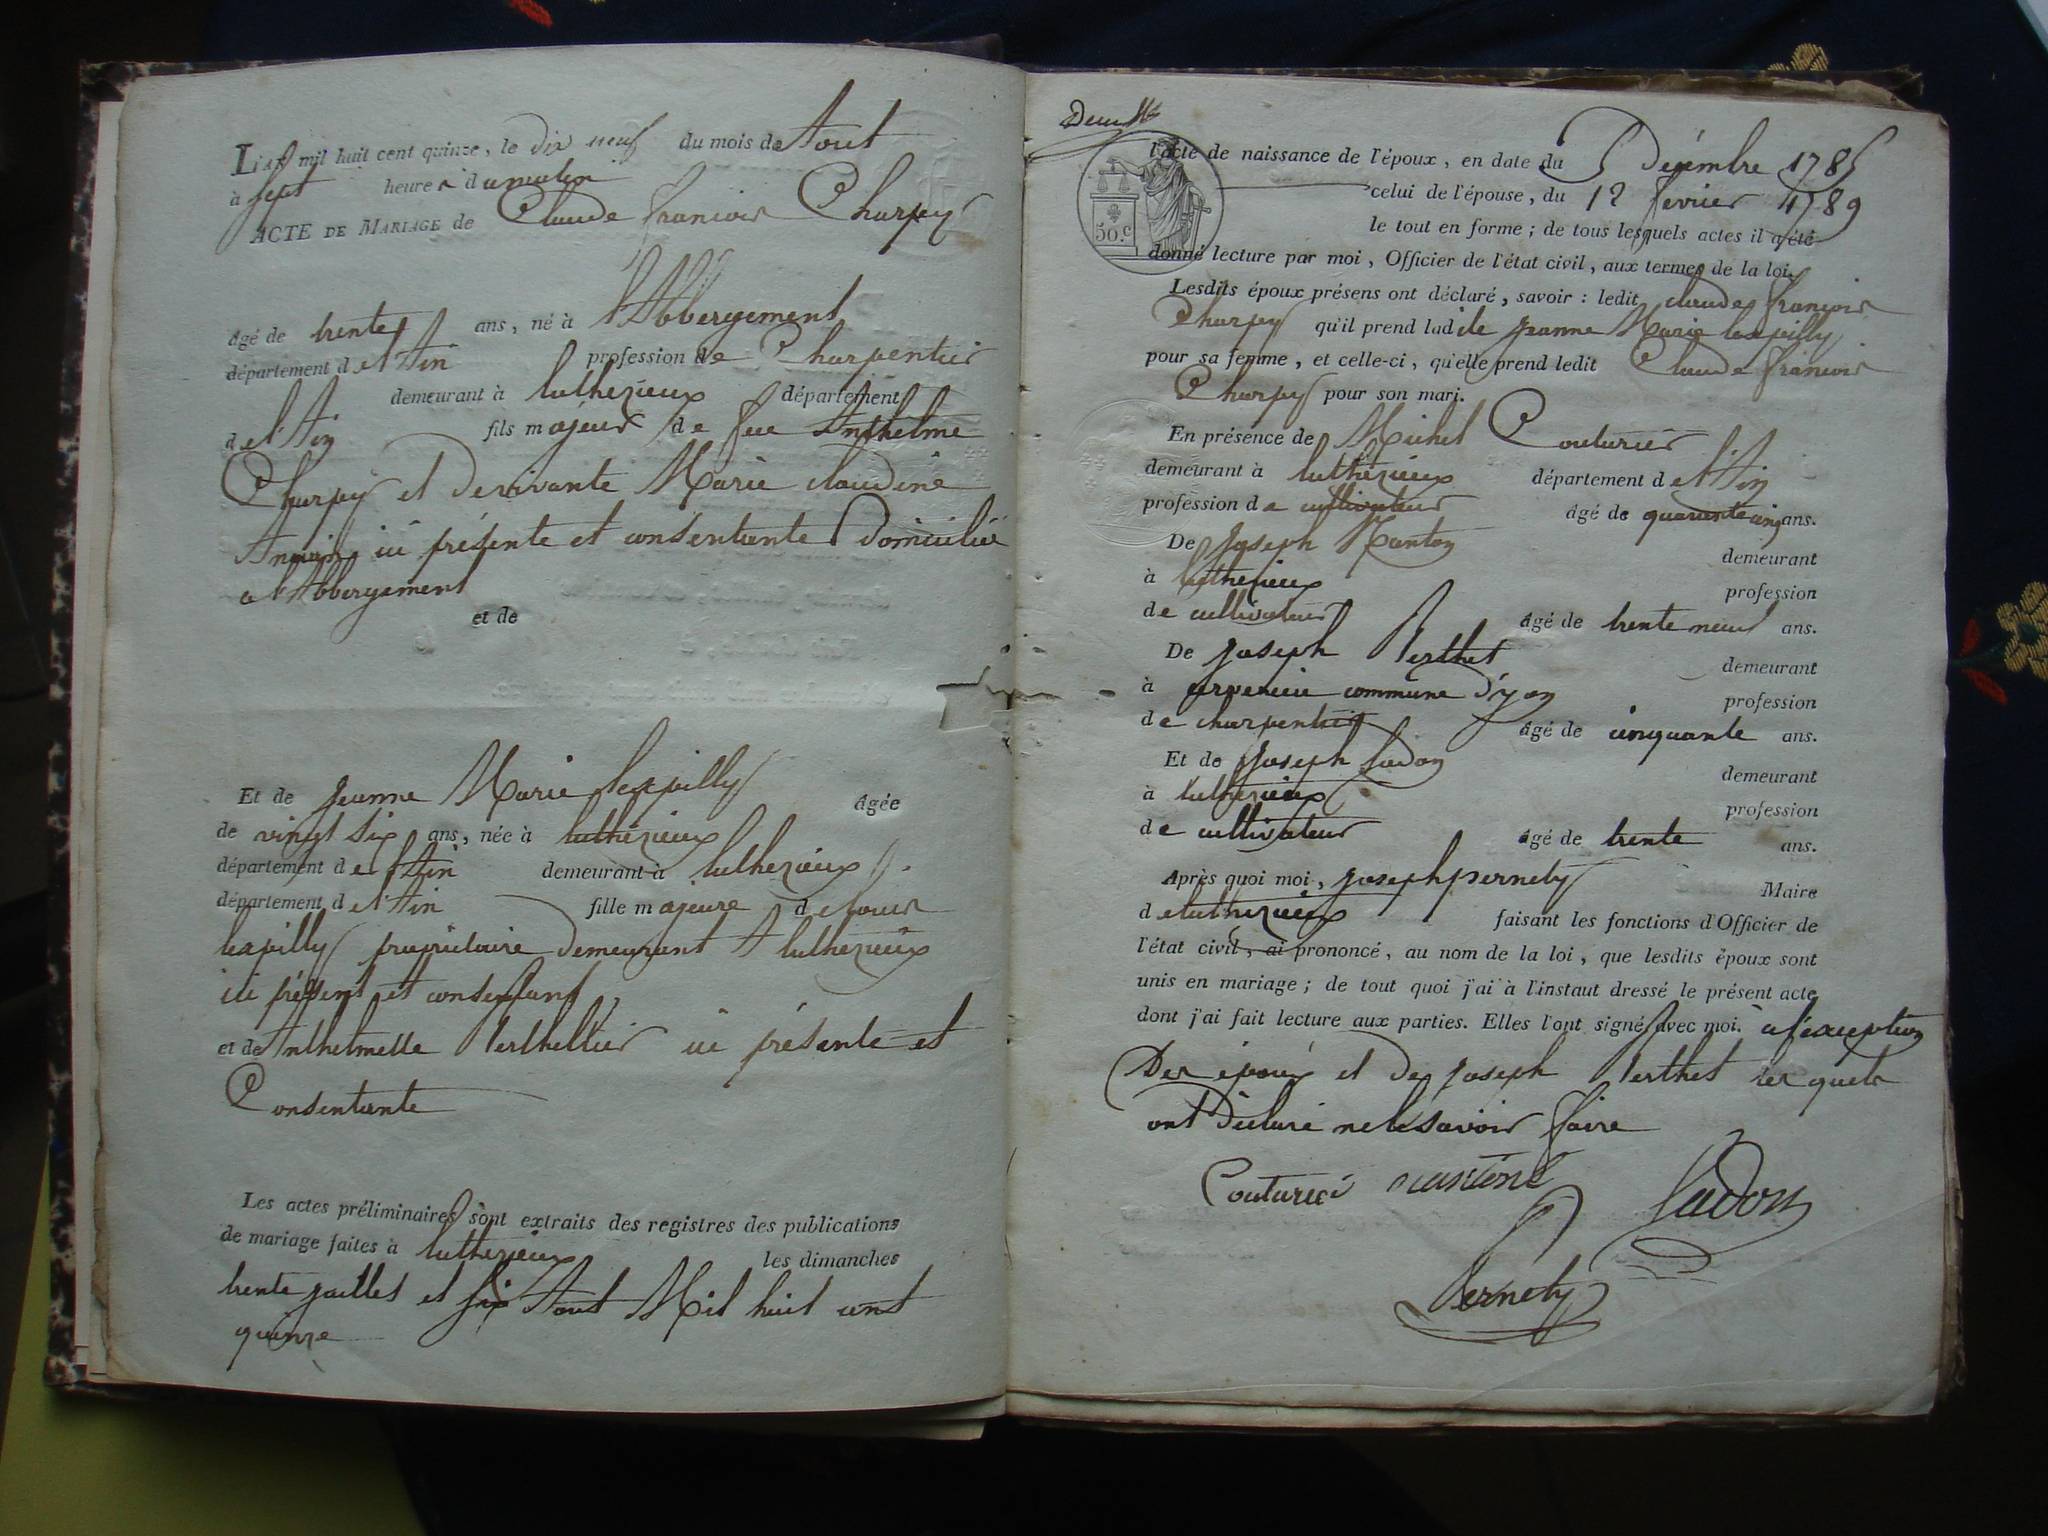 L'an mil huit cent quinze, le dix neuf du mois de Aout
à sept heures du matin
ACTE DE MARIAGE de Claude françois Charpy
âgé de trente ans, né à l'Abbergement
département de l'Ain profession de Charpentier
demeurant à luthezieux département
de l'Ain fils majeur de feu Anthelme
Charpy et de vivante Marie claudine
ici présente et consentante Domiciliée
a l'Abbergement
et de
Et de jeanne Marie lespilly âgée
de vingt six ans, née à luthézieux
département de l'Ain demeurant à luthezieux
département de l'Ain fille majeure de louis
lespilly propriétaire demeurant A luthezieux
ici présent et consentant,
et de Anthelmette Berthellier ici présente et
Consentante
Les actes préliminaires sont extraits des registres des publications
de mariage faites à luthezieux les dimanches
trente juillet et six Aout Mil huit cent
quinze
Deux
50.c
l'acte de naissance de l'époux, en date du 5 Décembre 1785
celui de l'épouse, du 12 fevrier 1789
le tout en forme; de tous lesquels actes il a été
donné lecture par moi, Officier de l'état civil, aux termes de la loi.
Lesdits époux présens ont déclaré, savoir: ledit claude françois
Charpy qu'il prend ladite jeanne Marie lespilly
pour sa femme, et celle-ci, qu'elle prend ledit Claude francois
Charpy pour son mari.
En présence de Michel Couturier
demeurant à luthézieux département de l'Ain
profession de cultivateur âgé de quarante cinq ans.
De joseph Manton demeurant
à luthezieux profession
de cultivateur âgé de trente neuf ans.
De joseph Berthet demeurant
à commune d'yon profession
de charpentier âgé de cinquante ans.
Et de joseph Sadon demeurant
à luthezieux profession
de cultivateur âgé de trente ans.
Après quoi moi, joseph pernety Maire
de luthezieux faisant les fonctions d'Officier de
l'état civil, ai prononcé, au nom de la loi, que lesdits époux sont
unis en mariage; de tout quoi j'ai à l'instaut dressé le présent acte
dont j'ai fait lecture aux parties. Elles l'ont signé avec moi. a l'exception
Des époux et de joseph Berthet lesquels
ont Déclaré ne le savoir faire
Couturié Sadon
Pernety